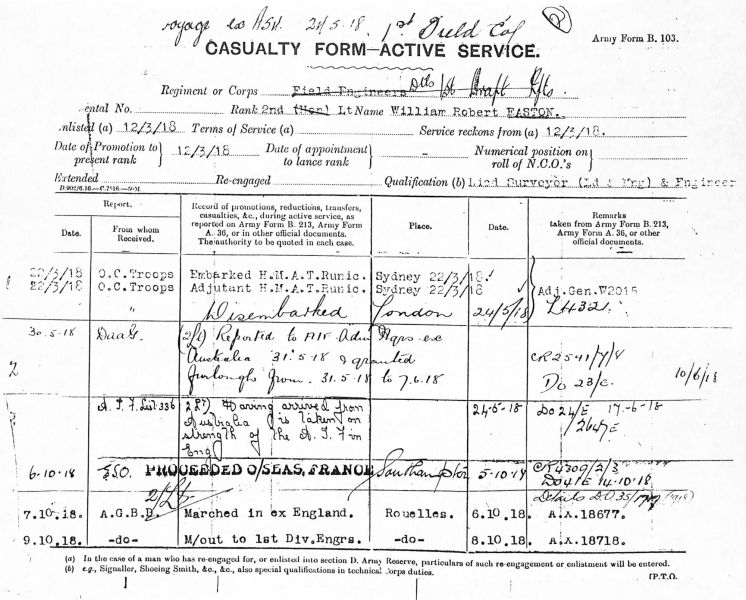 voyage ex Asu. 24/5.18. 1st Field Coy
CASUALTY FORM—ACTIVE SERVICE.
Army Form B. 103.
Regiment or Corps Field Engineers Dtls 1st Draft Rfts.
ental No. Rank 2nd (Hon) Lt Name William Robert EASTON.
enlisted (a) 12/3/18 Terms of Service (a) Service reckons from (a) 12/3/18.
Date of Promotion to present rank 12/3/18 Date of appointment to lance rank - Numerical position on roll of N.C.O.'s
Extended Re-engaged Qualification (b) Licd Surveyor (Ld & Mng) & Engineer
Report.
Date. From whom Received.
Record of promotions, reductions, transfers, casualties, &c., during active service, as reported on Army Form B. 213, Army Form A. 36, or in other official documents. The authority to be quoted in each case.
Place. Date.
Remarks taken from Army Form B. 213, Army Form A. 36, or other official documents.
22/3/18 O.C.Troops Embarked H.M.A.T.Runic. Sydney 22/3/18.
22/3/18 O.C.Troops Adjutant H.M.A.T.Runic. Sydney 22/3/18 Adj.Gen.W2015
" Disembarked London 24/5/18 LH321.
30.5.18 (2Lt) Reported to AIF Adm Hqrs ex
Australia 31.5.18 & granted
furlough from 31.5.18 to 7.6.18
CR2541/7/8
Do 23/E. 10/6/18
2
A.I.F. List 336 (2Lt) Having arrived from
Australia is taken on
strength of the A.I.F in
Eng
24-5-18 Do 24/E 17-6-18
/264/E
6.10.18 PROCEEDED O/SEAS, FRANCE Southampton 5.10.18 CR4309/2/3
DO41E 14.10.18
2/Lt
7.10.18. A.G.B.D. Marched in ex England. Rouelles. 6.10.18. A.X.18677.
9.10.18. -do- M/out to 1st Div.Engrs. -do- 8.10.18. A.X.18718.
(a) In the case of a man who has re-engaged for, or enlisted into section D. Army Reserve, particulars of such re-engagement or enlistment will be entered.
(b) e.g., Signaller, Shoeing Smith, &c., &c., also special qualifications in technical Corps duties.
[P.T.O.